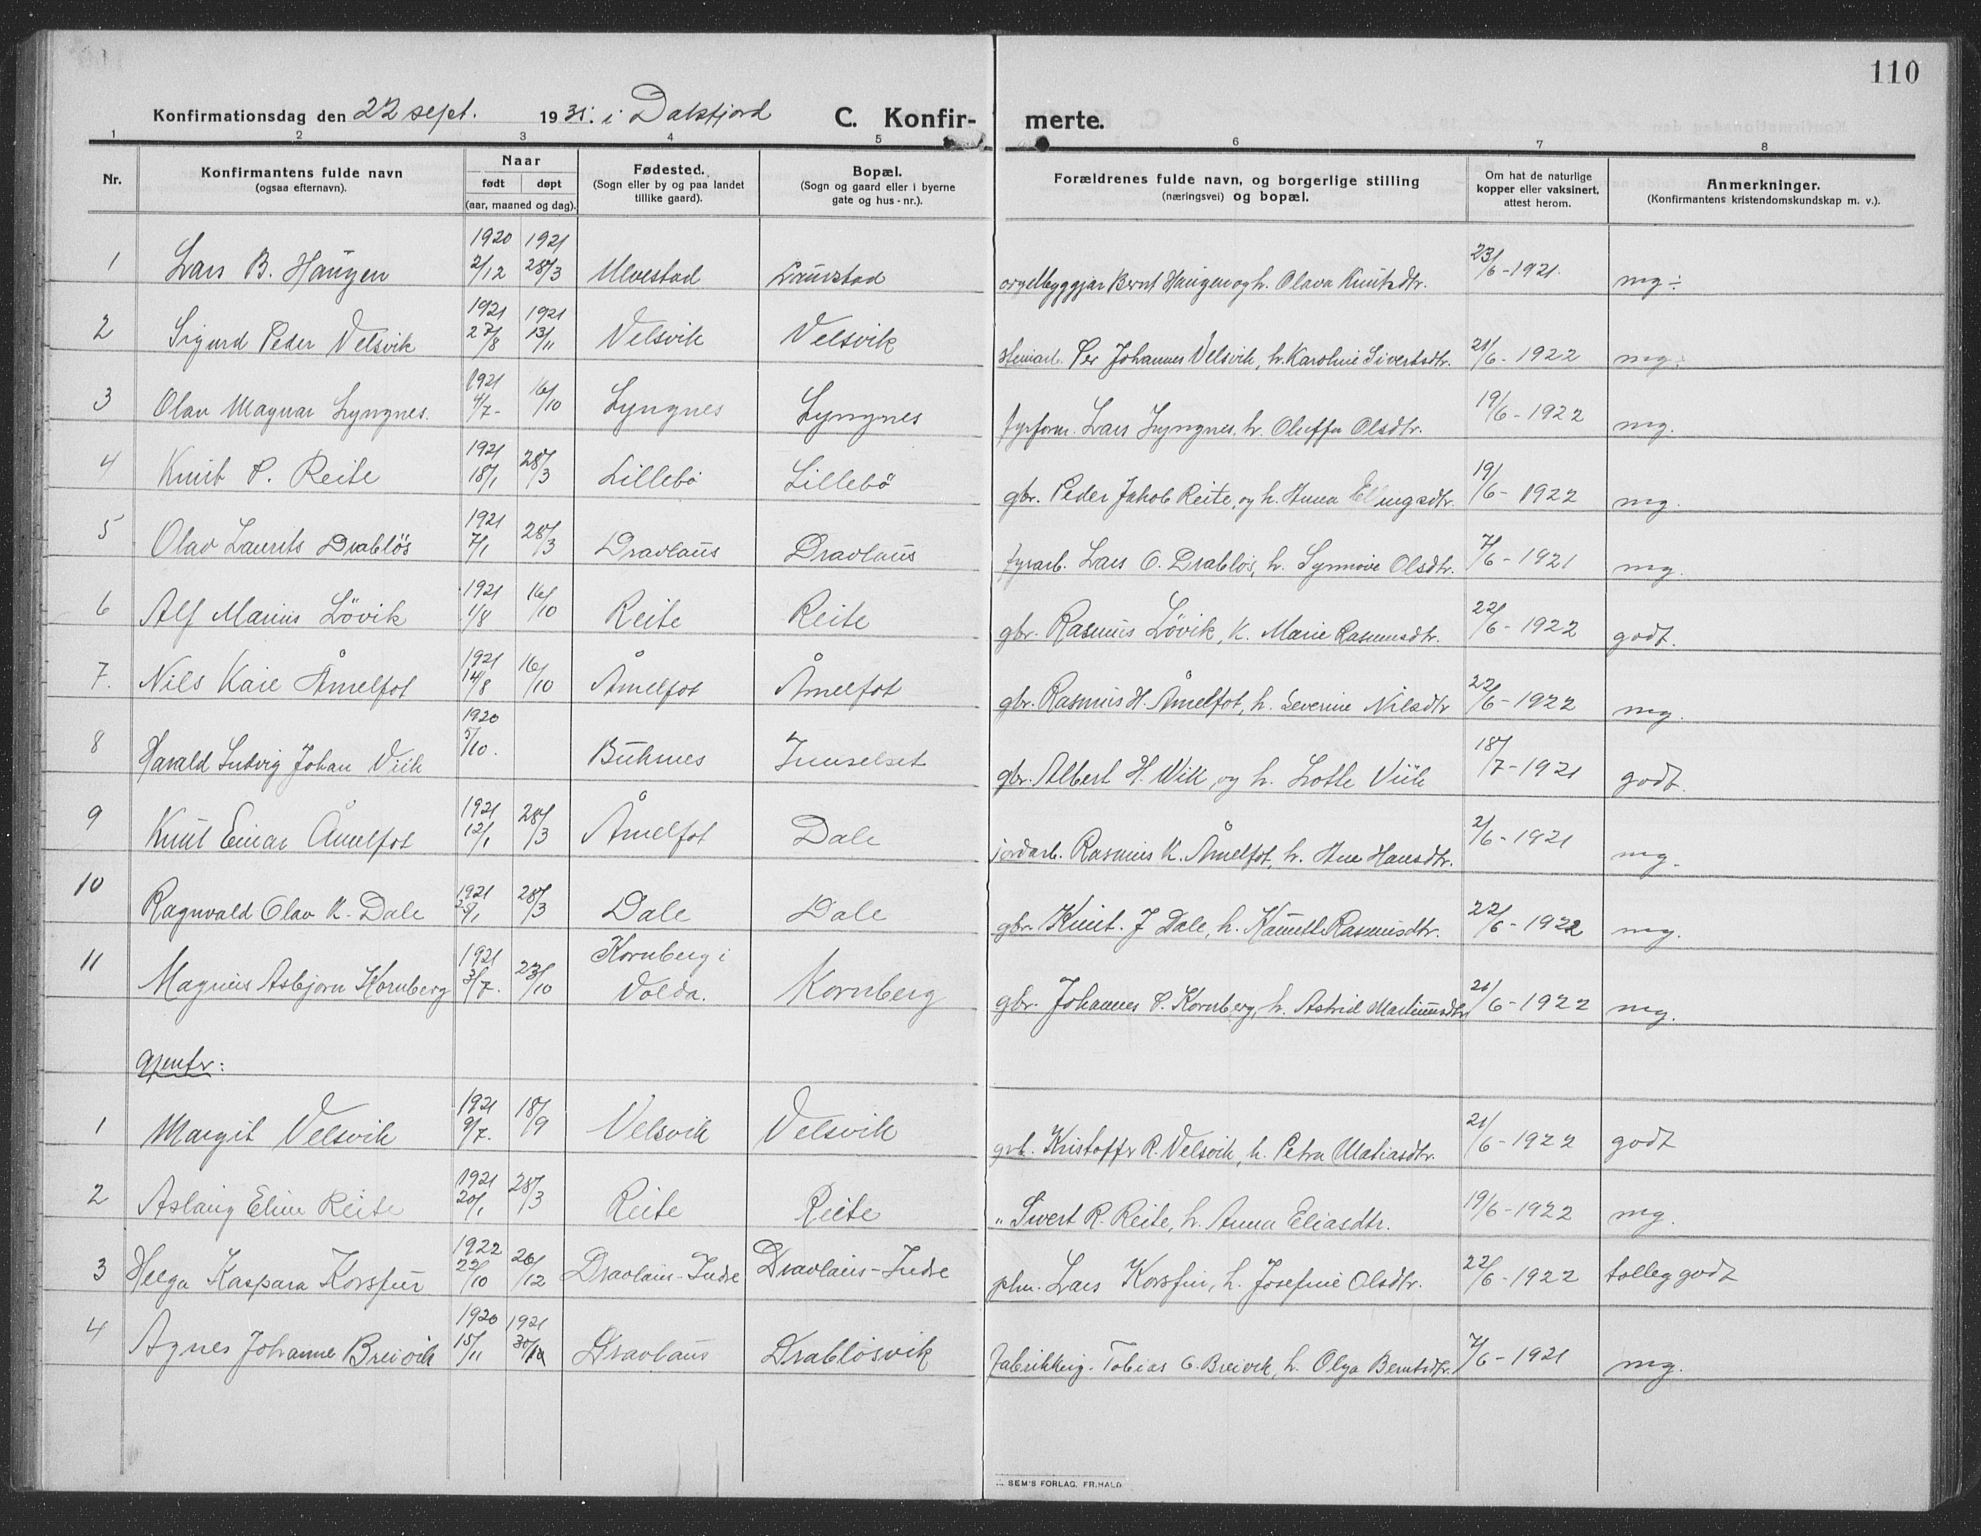 110
Konfirmationsdag den 22 sept. 1935. i Dalsfjord C. Konfir- merte.
1 2 3 4 5 6 7 8
Nr. Konfirmantens fulde navn (ogsaa efternavn). Naar født døpt (aar, maaned og dag). Fødested. (Sogn eller by og paa landet tillike gaard). Bopæl. (Sogn og gaard eller i byerne gate og hus-nr.). Forældrenes fulde navn, og borgerlige stilling (næringsvei) og bopæl. Om hat de naturlige kopper eller vaksinert, attest herom. Anmerkninger. (Konfirmantens kristendomskundskap m. v.).
1 Lars B. Haugen 1920 2/12 1921 28/3 Ulvestad Laurstad orgelbyggjar Bernt Haugen og h. Olava Knutsdtr. 23/6-1921. mg ÷
2 Sigurd Peder Velsvik 1921 27/8 1921 13/11 Velsvik Velsvik steinarb. Per Johannes Velsvik, h. Karoline Sivertsdtr. 21/6-1922 mg÷
3 Olav Magnar Lyngnes. 1921 4/7- 16/10 Lyngnes Lyngnes fyrform. Lars Lyngnes, h. Oluffa Olsdtr. 19/6-1922 mg.
4 Knut P. Reite 1921 18/1 28/3 Lillebö Lillebö gbr. Peder Jakob Reite, og h. Anna Elingsdtr. 19/6-1922 mg.
5 Olav Laurits Drabløs 1921 7/1 28/3 Dravlaus Dravlaus fyrarb. Lars O. Drabløs, h. Synnøve Olsdtr. 7/6-1921 mg.
6 Alf Marius Lövik 1921 1/8 16/10 Reite Reite gbr. Rasmus Løvik, K. Marie Rasmusdtr. 22/6-1922 godt.
7. Nils Kåre Åmelfot 1921 14/8 16/10 Åmelfot Åmelfot gbr. Rasmus H. Åmelfot, h. Severine Nilsdtr 22/6-1922 mg.
8 Harald Ludvig Johan Viik 1920 5/10. Buksnes Innselset gbr. Albert H. Wik, og h. Lotte Viik 18/7-1921 godt.
9 Knut Einar Åmelfot 1921 12/1 28/3 Åmelfot Dale jordarb. Rasmus K. Åmelfot, h. Ane Hansdtr. 2/6-1921 mg.
10 Ragnvald Olav K. Dale 1921 25/1 28/3 Dale Dale gbr. Knut. J Dale, h. Rasmusdtr. 22/6-1922 mg.
11 Magnus Asbjørn Kornberg 1921 3/7. 23/10 Kornberg i Volda. Kornberg gbr. Johannes P. Kornberg, h. Astrid Martinusdtr 21/6-1922 mg.
Gjentr:
1 Margit Velsvik 1921 9/7. 18/9 Velsvik Velsvik gbr. Kristoffer R. Velsvik, h. Petra Matiasdtr. 21/6-1922 godt
2 Aslaug Eline Reite 1921 20/1 28/3 Reite Reite " Sivert R. Reite, h. Anna Eliasdtr. 19/6-1922 mg.
3 Helga Kaspara Korsfur 1922 22/10 26/12 Dravlaus-Indre Dravlaus-Indre plm. Lars Korsfur, h. Josefine Olsdtr. 22/6-1922 tolleg godt
4 Agnes Johanne Breivik 1920 15/11 1921 30/10 Dravlaus Drabløsvik fabrikkeig. Tobias C. Breivik, h. Olga Berntsdtr. 7/6-1921 mg.
SEM'S FORLAG, FR.HALD